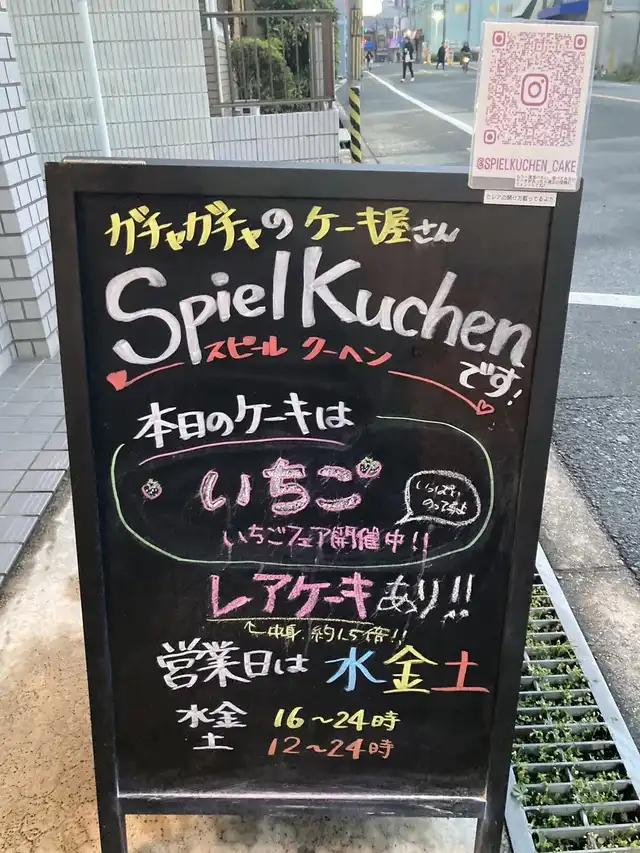 @SPIELKUCHEN_CAKE
ガチャガチャのケーキ屋さん
Spiel Kuchen
スピール クーヘン
です!
本日のケーキは
いちご
いっぱい
のってるよ
いちごフェア開催中!!
レアケーキあり!!
↑中身、約1.5倍!!
営業日は 水金土
水金 16〜24時
土 12〜24時